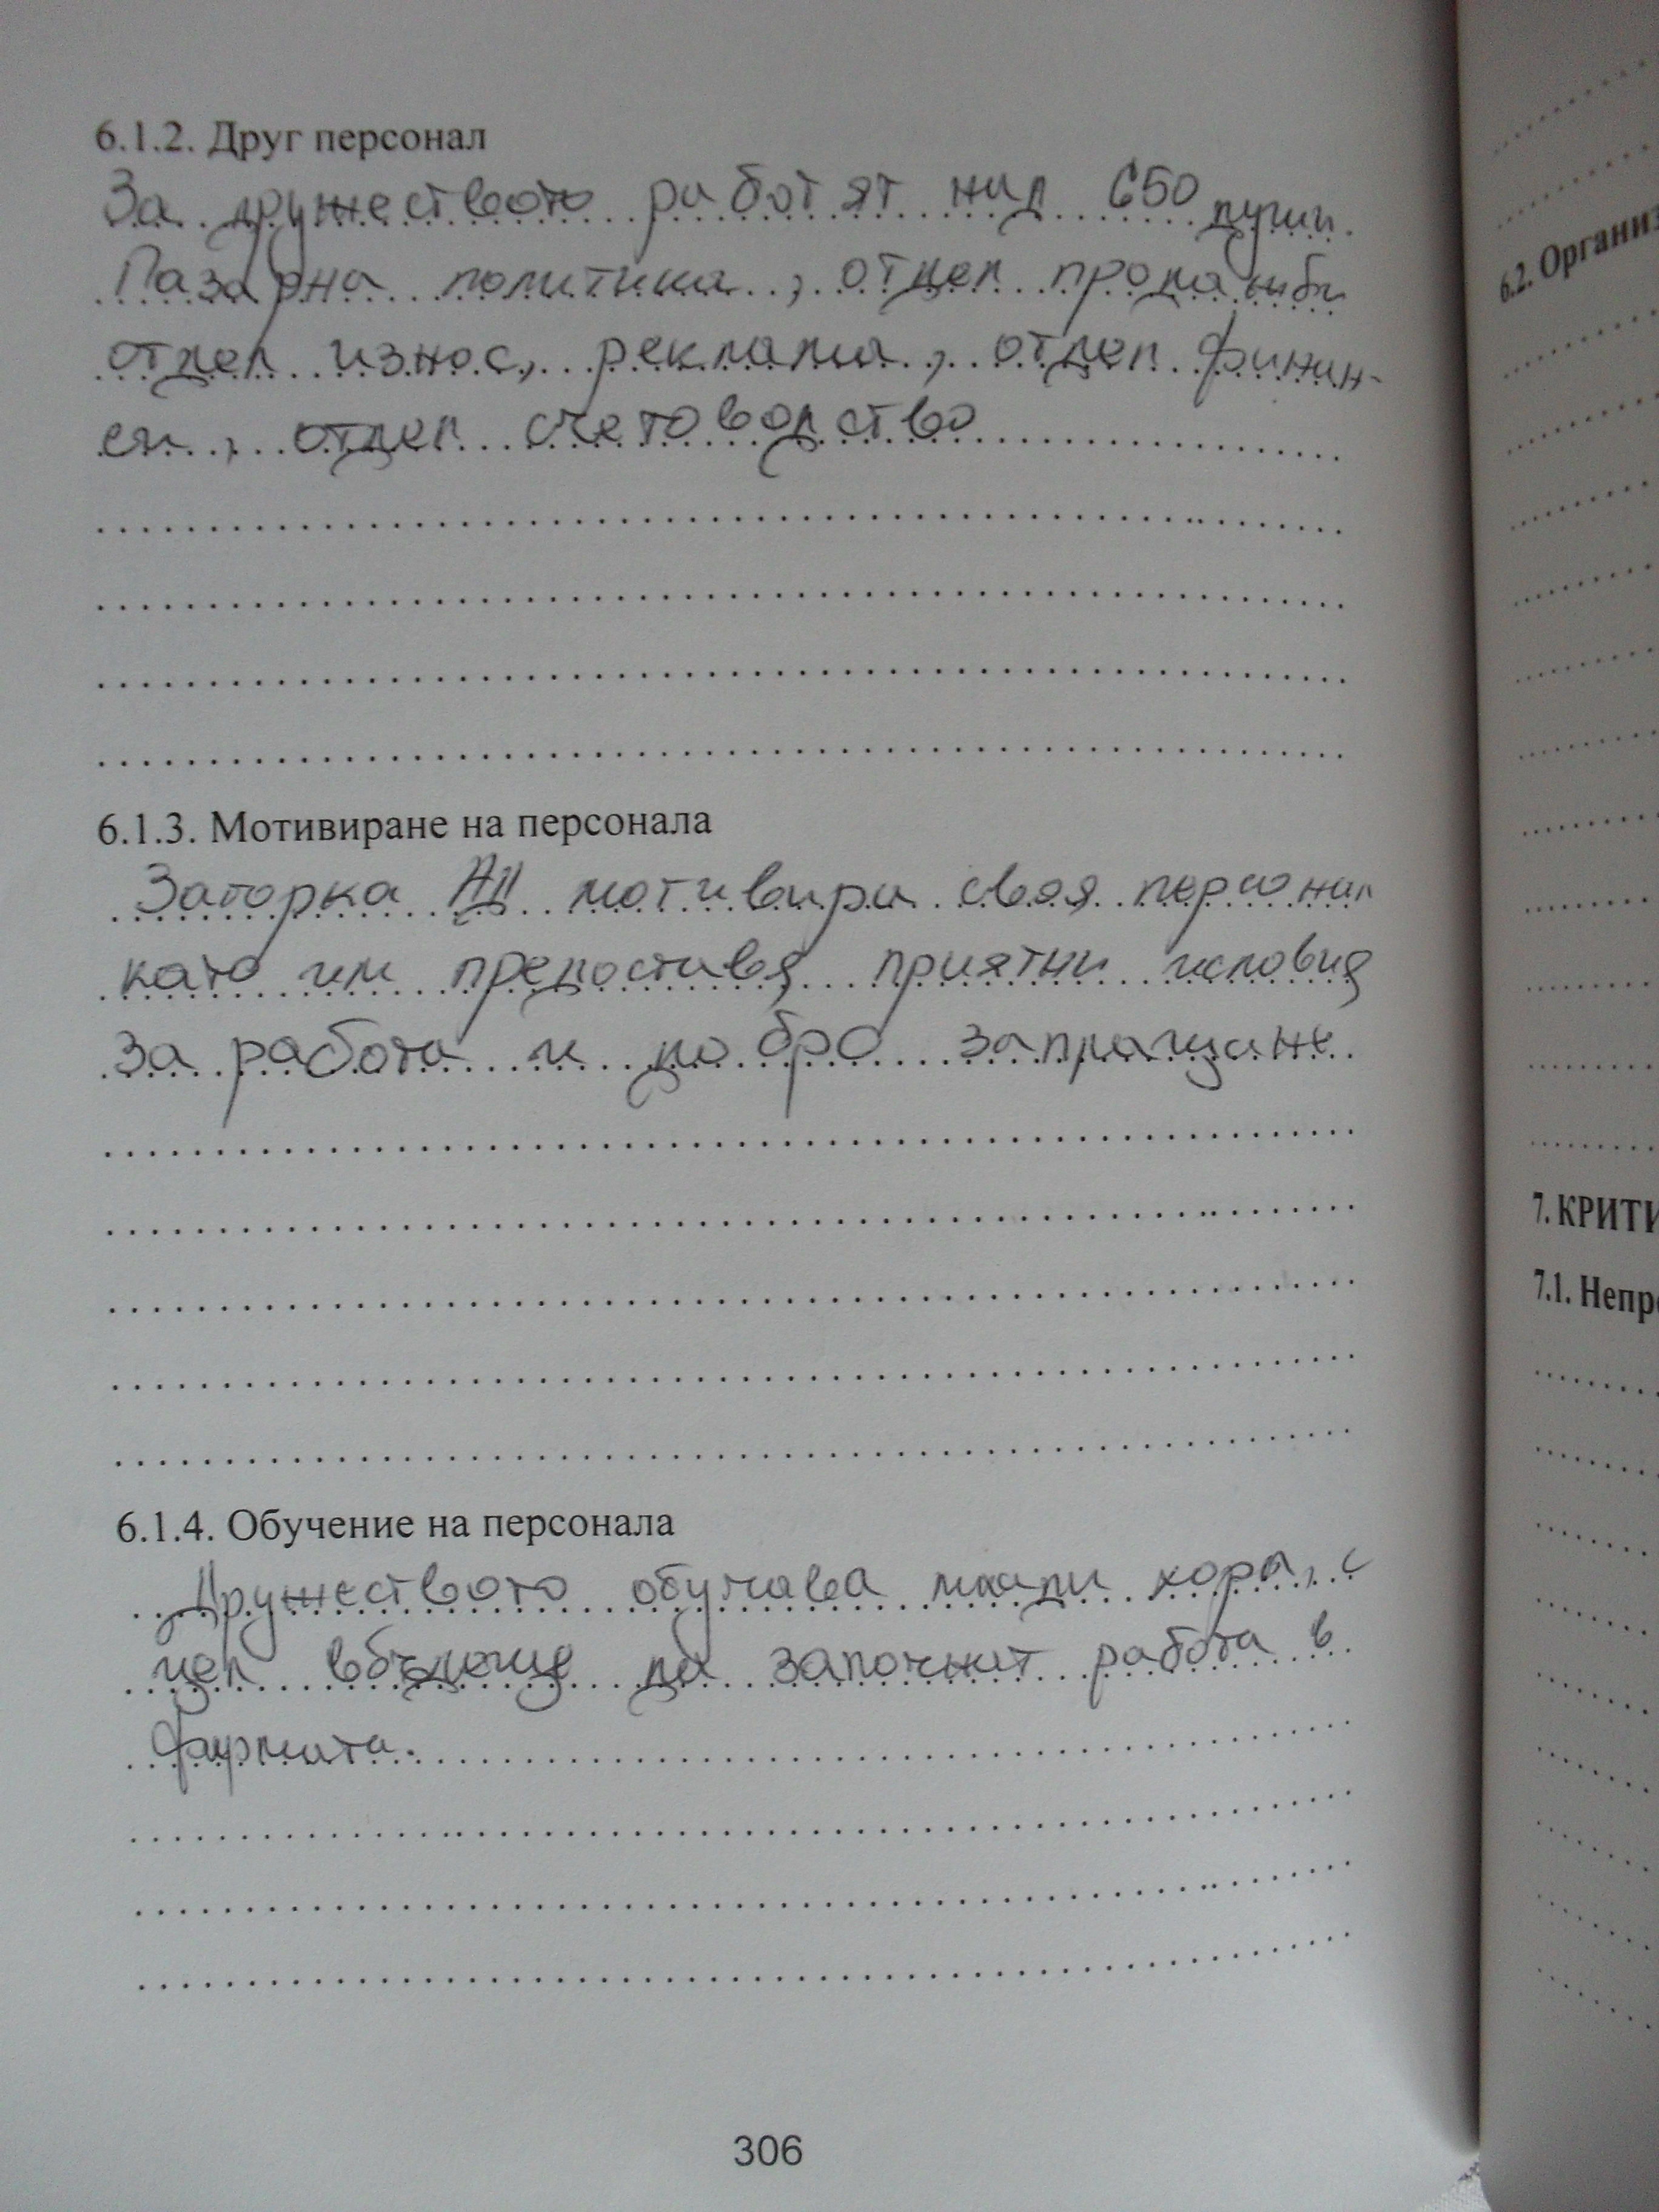 6.1.2. Друг персонал
За дружеството работят над 650 души.
Пазарна политика, отдел продажби
отдел износ, реклама, отдел финан-
си, отдел счетоводство
6.1.3. Мотивиране на персонала
Загорка АД мотивира своя персонал
като им предоставя приятни условия
за работа и добро запращане.
6.1.4. Обучение на персонала
Дружеството обучава млади хора, с
цел вбъдеще да започнат работа в
фирмата.
306
6.2. Организ
7. КРИТИ
7.1. Непр